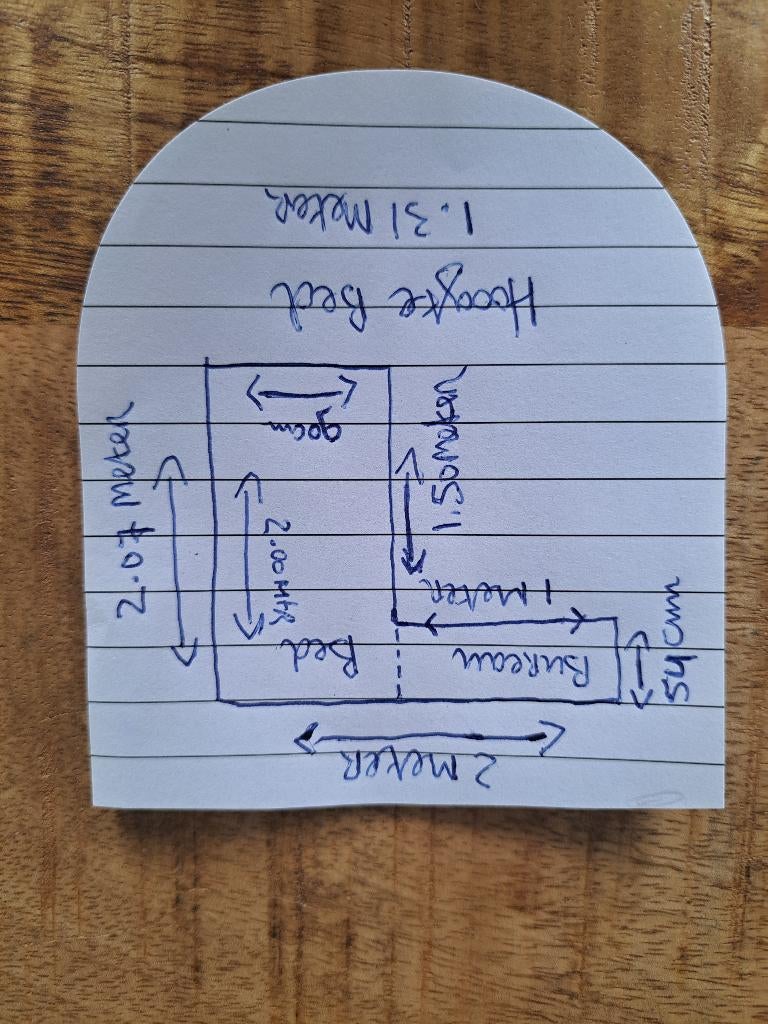 2 Meter
54 cm
Bureau
Bed
1 Meter
1.50 meter
2.00 Mtr
2.07 meter
90cm
Hoogte Bed
1.31 Meter